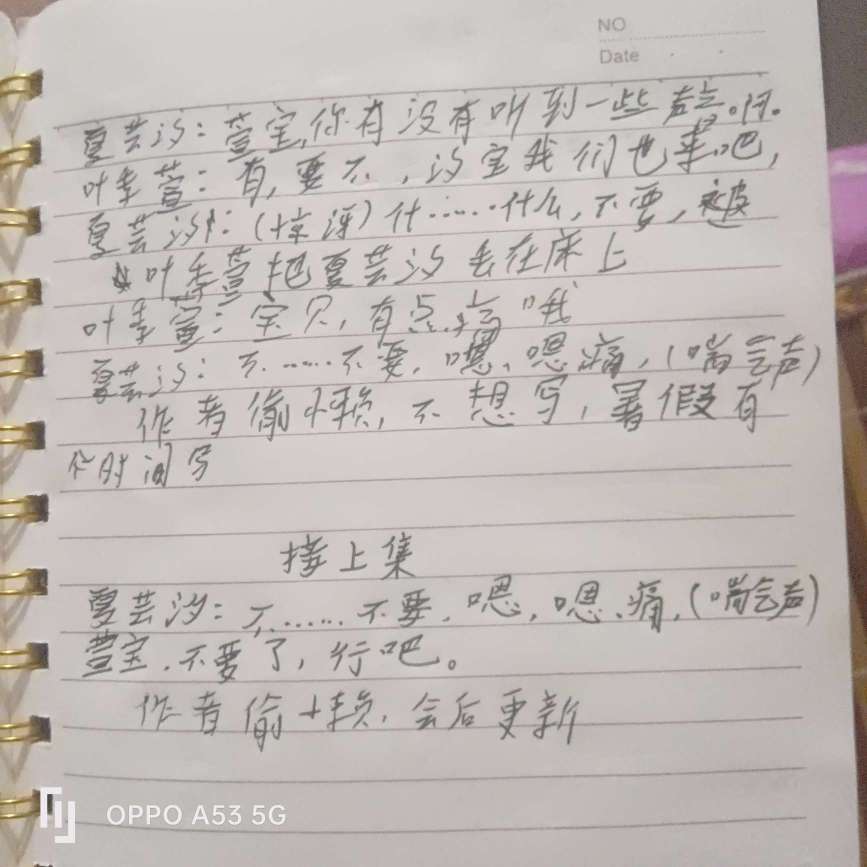 NO
Date
夏芸汐：萱宝,你有没有听到一些声音。阿。
叶季萱：有,要不,汐宝我们也来吧,
夏芸汐：(惊讶)什……什么,不要,被
叶季萱把夏芸汐丢在床上
叶季萱：宝贝,有点 哦
夏芸汐：不……不要,嗯、嗯痛,(喘气声)
作者偷懒,不想写,暑假有
个时间写
接上集
夏芸汐：不……不要,嗯,嗯、痛,(喘气声)
萱宝,不要了,行吧。
作者偷懒,会后更新
OPPO A53 5G